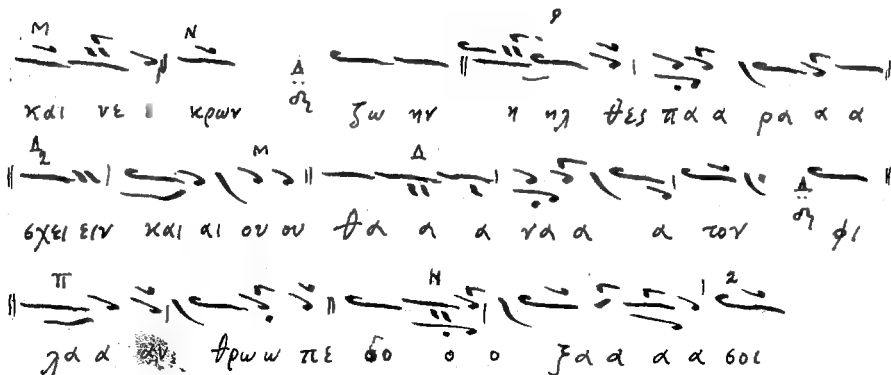 Μ Ν 9
και νε ι κρων Δ δη ζω ην η ηλ θες πα α ρα α α
Δ 2 Μ Δ
σχει ειν και αι ου ου θα α α να α α τον Δ δη φι
Π Ν 1 2
λα α αν θρω ω πε δο ο ο ξα α α α σοι